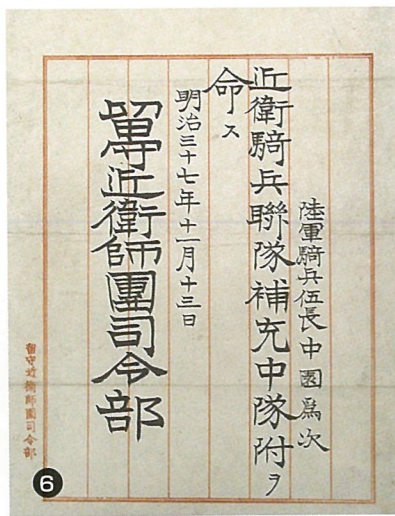 陸軍騎兵伍長中園爲次
近衛騎兵聯隊補充中隊附ヲ
命ス
明治三十七年十一月十三日
留守近衛師團司令部
留守近衛師團司令部
6